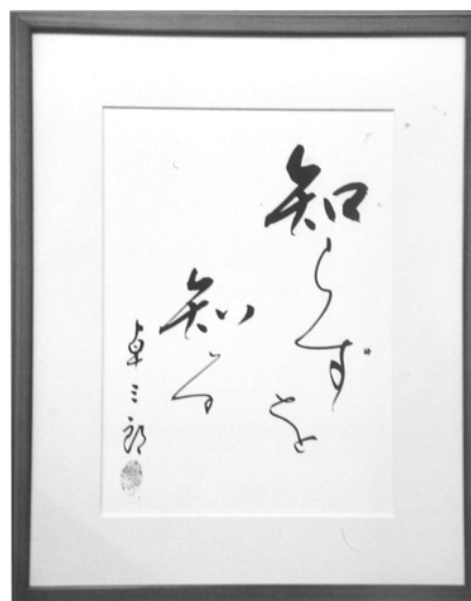 知らずを
知る
卓三郎